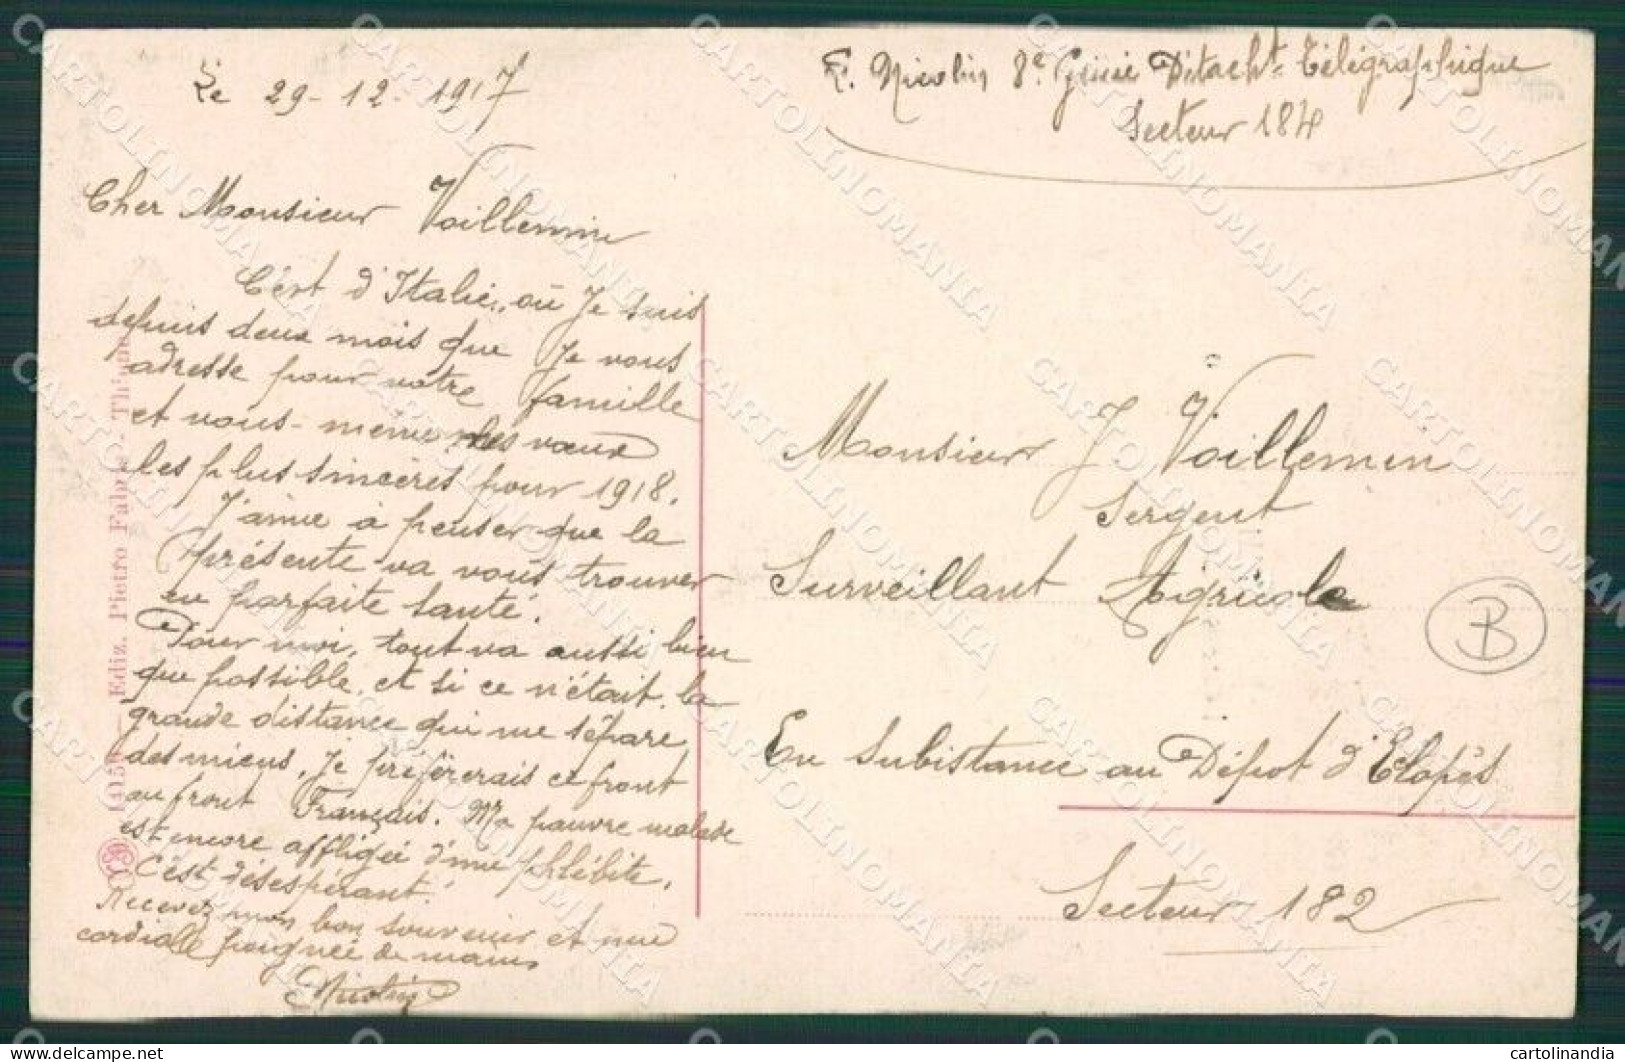 Le 29-12-1917
E. Nicolin 8e Génie Détacht Télégraphique
Secteur 184
Cher Monsieur Voillemin
C'est d'Italie, où Je suis
depuis deux mois que Je vous
adresse pour votre famille
et vous-même les vœux
les plus sincères pour 1918.
J'aime à penser que la
présente va vous trouver
en parfaite santé.
Pour moi, tout va aussi bien
que possible, et si ce n'était la
grande distance qui me sépare
des miens, Je préférerais ce front
au front Français. Ma pauvre malade
est encore affligée d'une phlébite.
C'est désespérant!
Recevez mon bon souvenir et une
cordiale poignée de mains
Nicolin
Monsieur J Voillemin
Sergent
Surveillant Agricole
En Subistance au Dépot d'Elopés
Secteur 182
B
Ediz. Pietro Fabr
CARTOLINOMANIA
delcampe.net
cartolinandia